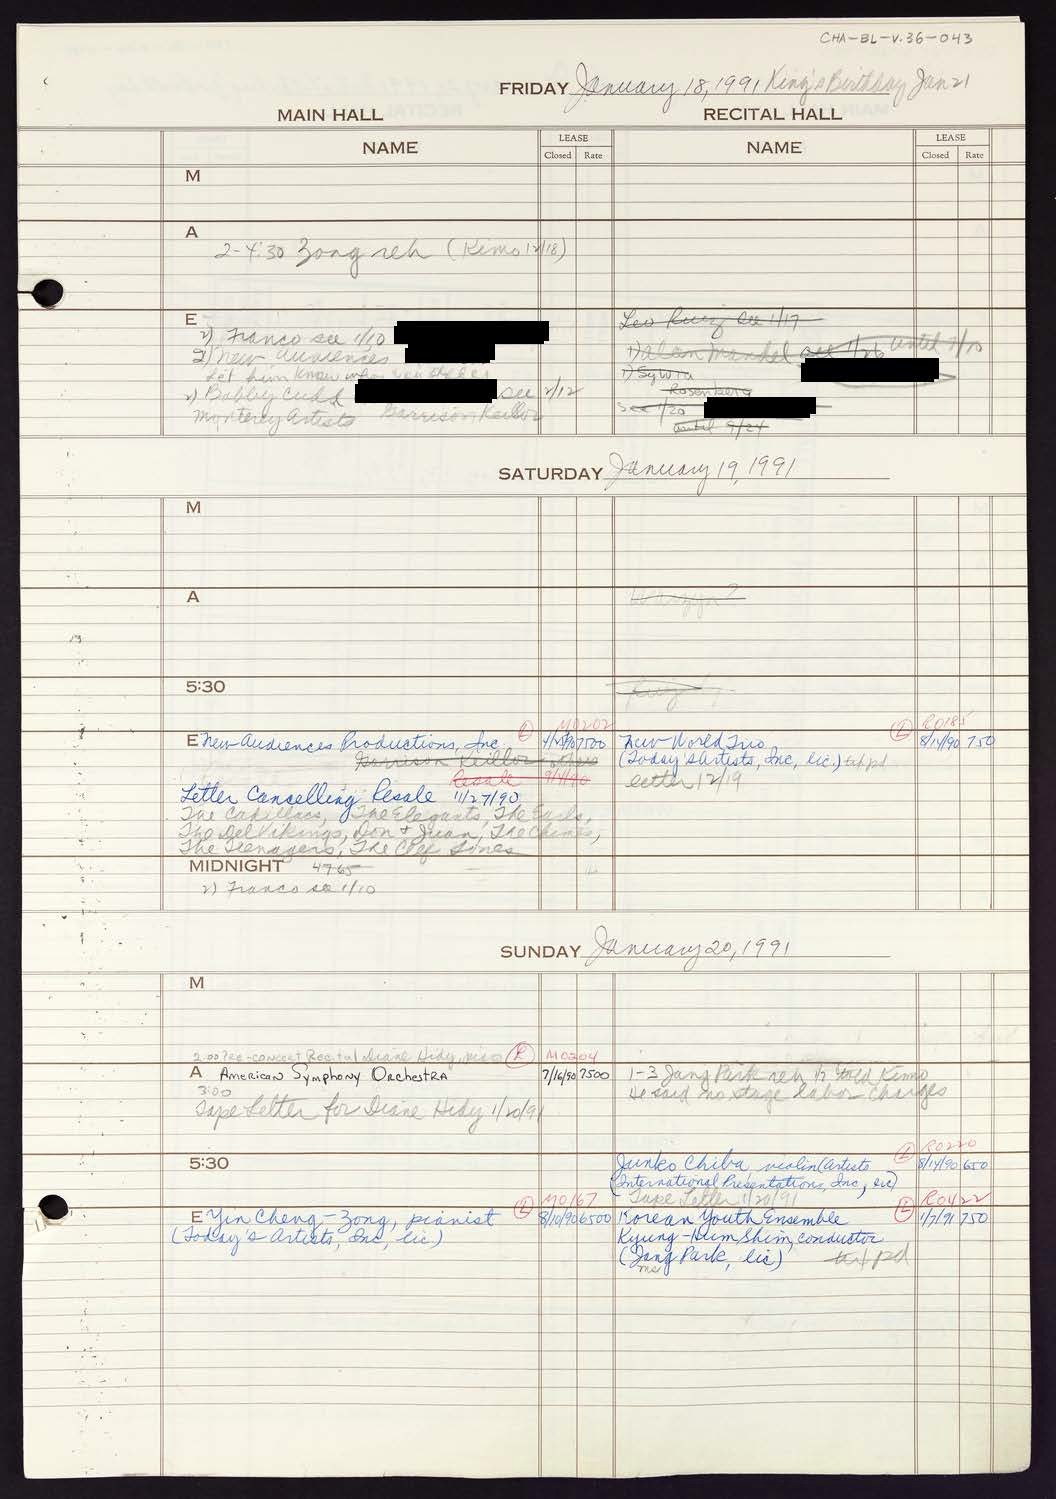 CHA-BL-V.36-043
FRIDAY January 18, 1991 King's Birthday Jan 21
MAIN HALL RECITAL HALL
NAME LEASE Closed Rate NAME LEASE Closed Rate
M
A
2-4:30 Zong reh (Kimo 12/18)
E
2) Franco see 1/10
2) New Audiences
let him know
2) Bobby see 2/12
Monterey Artists Garrison Keillor
Leo Ruiz see 1/17
1) Alan Mandel see 1/26 until 9/10
1) Sylvia
Rosenberg
See 1/20
until 9/24
SATURDAY January 19, 1991
M
A
5:30
L M0202
E New Audiences Productions, Inc 7500
Garrison Keillor
Resale 9/11/90
Letter Cancelling Resale 11/27/90
The Cadillacs, The Elegants, The Earls,
The Del Vikings, Don & Juan, The Chimes,
The Teenagers, The Clef Tones
L R0185
New World Trio 8/14/90 750
(Today's Artists, Inc, lic.) tax pd
letter 12/19
MIDNIGHT 4765
2) Franco see 1/10
SUNDAY January 20, 1991
M
2:00 Pre-concert Recital Diane Hidy, piano L M0204
A American Symphony Orchestra 7/16/90 7500
3:00
Tape Letter for Diane Hidy 1/20/91
1-3 Jang Park reh told Kimo
He said no stage labor charges
5:30
L R0220
Junko Chiba, violin (Artists 8/14/90 650
International Presentations, Inc, lic)
Tape Letter 1/20/91
L M0167
E Yin Cheng-Zong, pianist 8/10/90 6500
(Today's Artists, Inc, lic)
L R0422
Korean Youth Ensemble 1/7/91 750
Kyung-Hum Shim, conductor
(Jang Park, lic) tax pd
ms